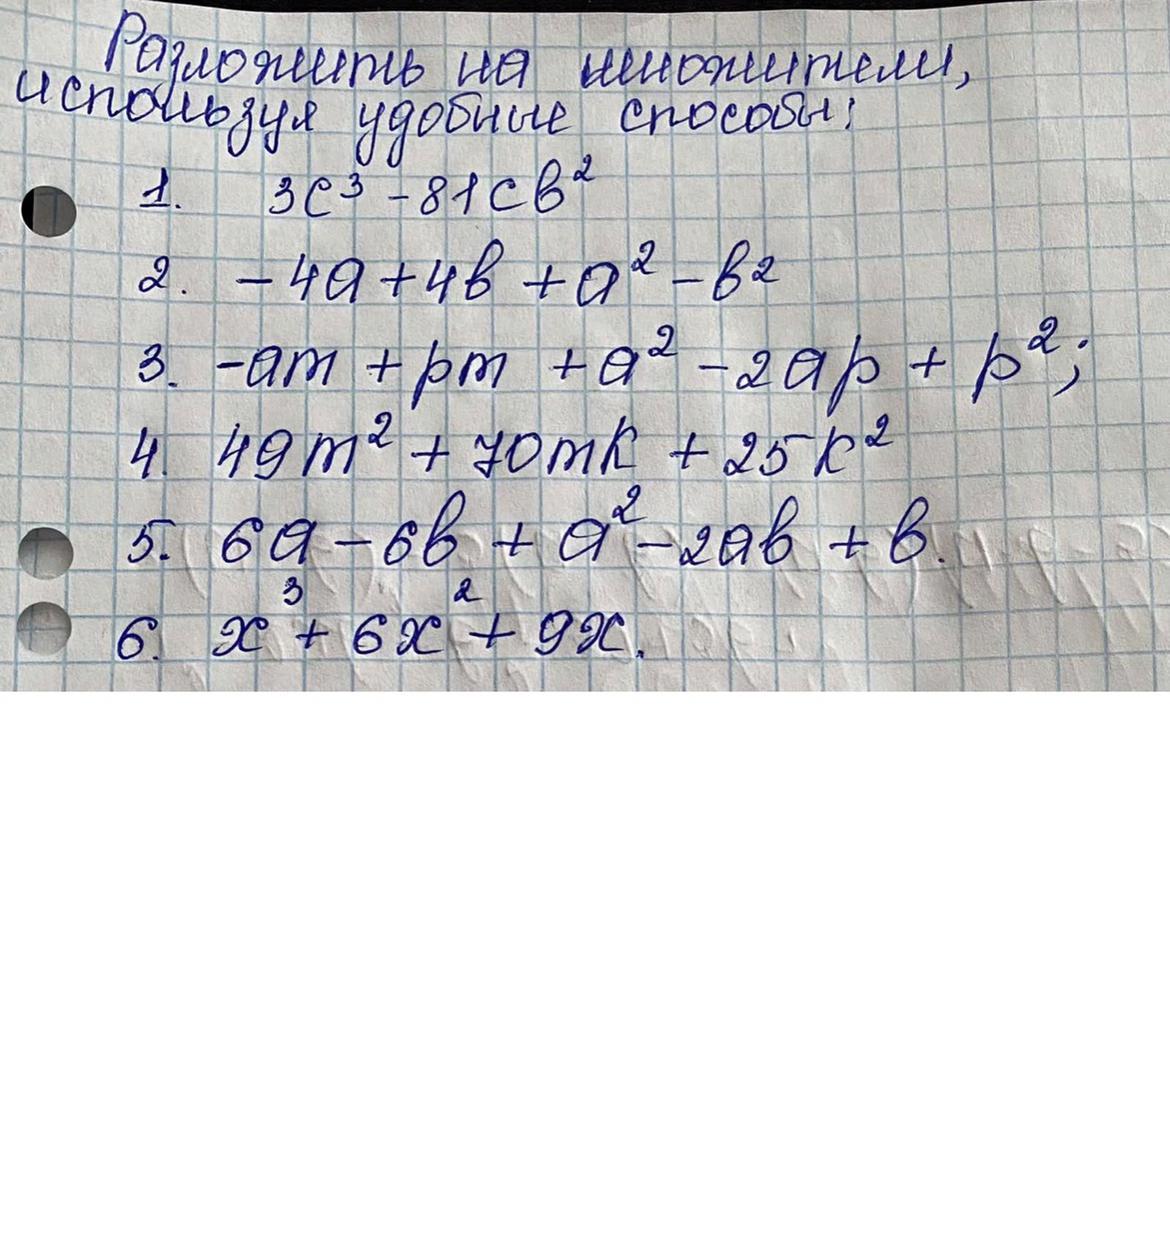 Разложить на множители,
используя удобные способы:
1. 3c³ - 81cв²
2. -4a + 4в + a² - в²
3. -am + pm + a² - 2ap + p²;
4. 49m² + 70mk + 25k²
5. 6a - 6в + a² - 2aв + в.
6. x³ + 6x² + 9x.